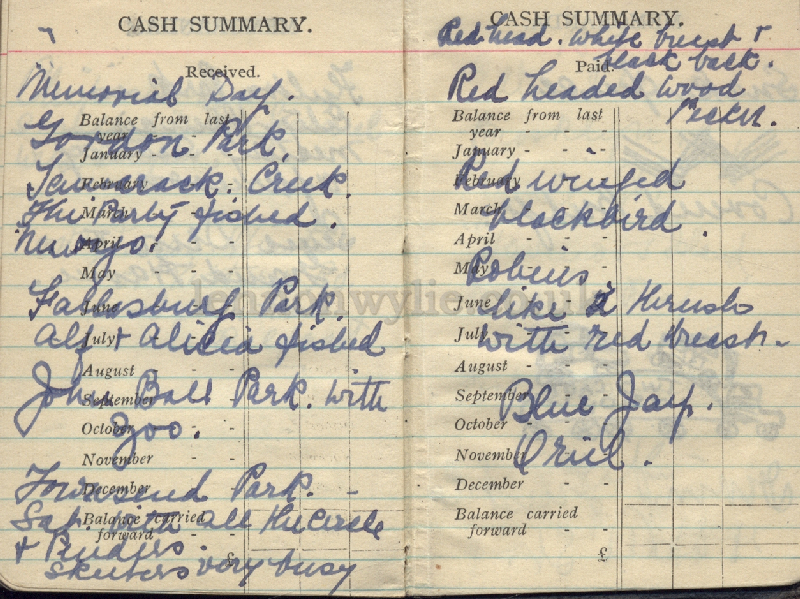 CASH SUMMARY.
Received.
Memorial Day.
Balance from last
year - - -
Gordon Park.
January - -
February - -
Creek.
March - -
The Party fished.
April - -
Newaygo.
May - -
June - -
Park.
July - -
Alf & Alicia fished
August - -
John Ball Park. with
September - -
October - -
Zoo.
November - -
December - -
Townsend Park. -
Balance carried
forward - -
Sat. with all the Circle
&
skeeters very busy
£
CASH SUMMARY.
Red head. white breast &
black back.
Paid.
Red headed wood
pecker.
Balance from last
year - - -
January - -
February - -
Red winged
March - -
blackbird.
April - -
May - -
Robins
June - -
like a thrush
July - -
with red breast -
August - -
September - -
Blue Jay.
October - -
November - -
Oriel.
December - -
Balance carried
forward - -
£
lennonwylie.co.uk